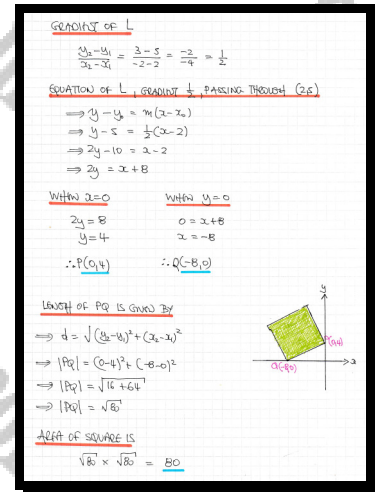 GRADIENT OF L
y₂-y₁/x₂-x₁ = 3-5/-2-2 = -2/-4 = 1/2
EQUATION OF L, GRADIENT 1/2, PASSING THROUGH (2,5)
⇒ y-y₀ = m(x-x₀)
⇒ y-5 = 1/2(x-2)
⇒ 2y-10 = x-2
⇒ 2y = x+8
WHEN x=0
2y = 8
y = 4
∴ P(0,4)
WHEN y=0
0 = x+8
x = -8
∴ Q(-8,0)
LENGTH OF PQ IS GIVEN BY
⇒ d = √(y₂-y₁)²+(x₂-x₁)²
⇒ |PQ| = (0-4)²+(-8-0)²
⇒ |PQ| = √16+64
⇒ |PQ| = √80
y
P(0,4)
x
Q(-8,0)
AREA OF SQUARE IS
√80 × √80 = 80